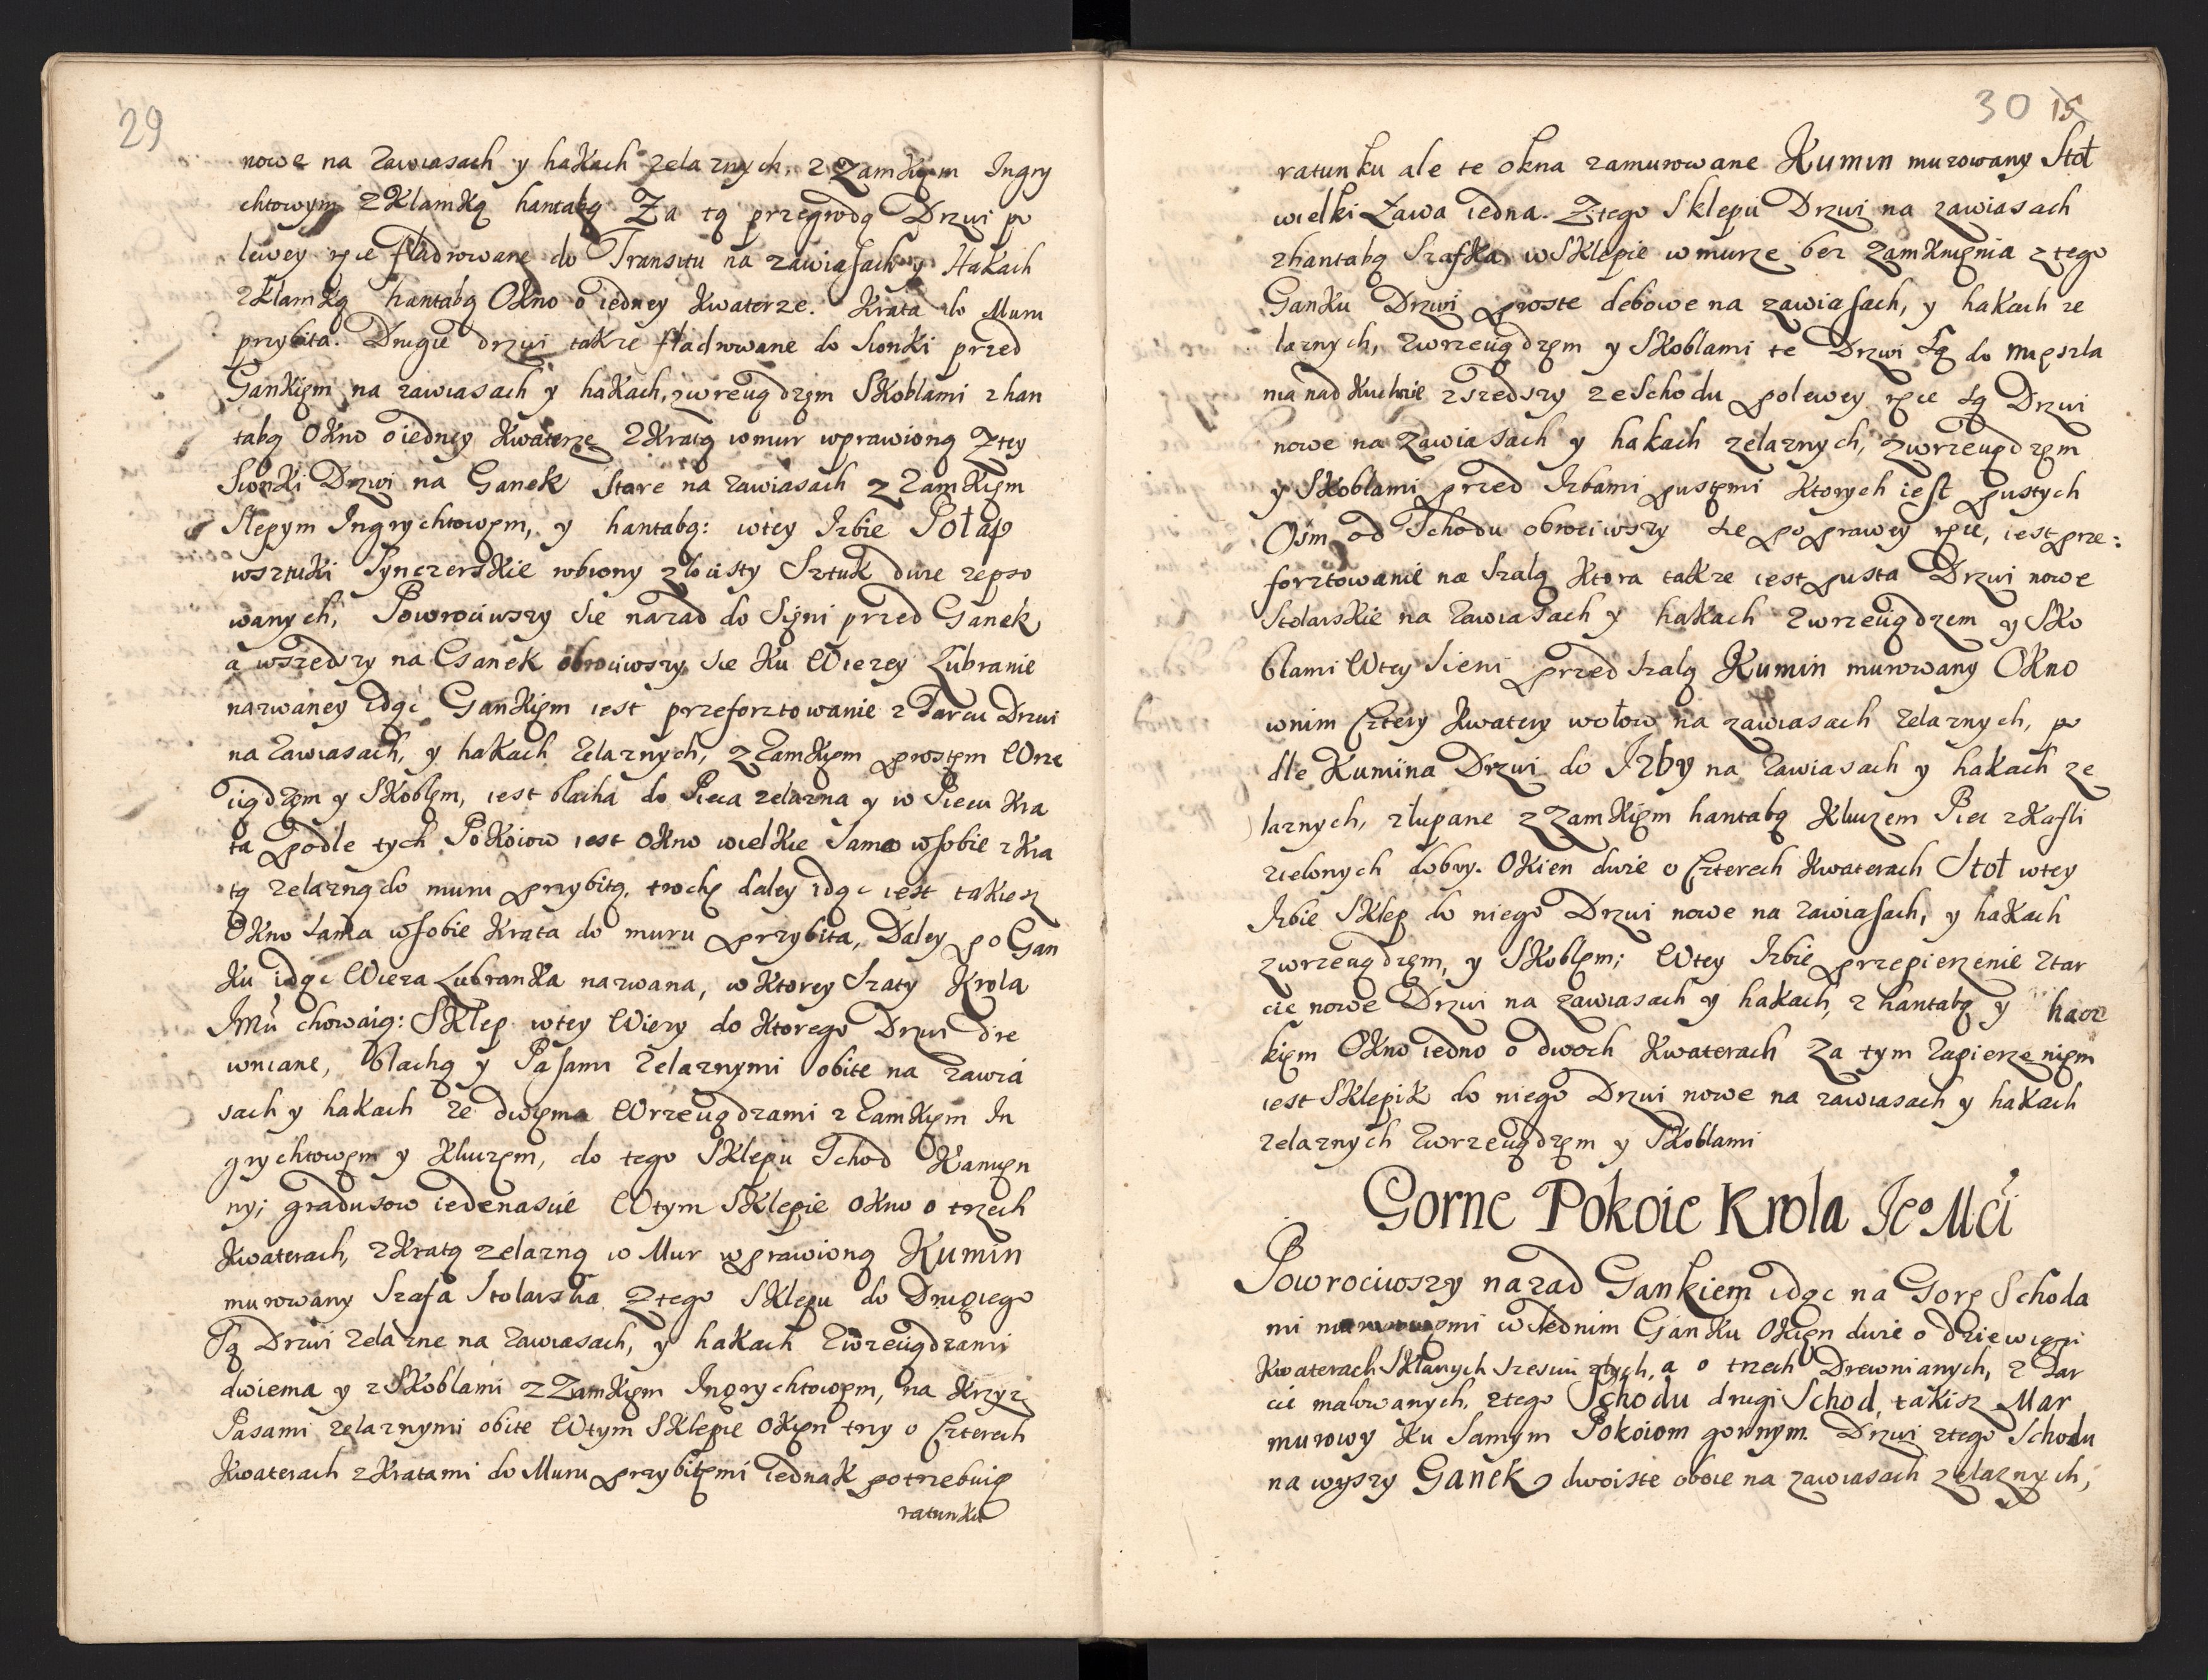 29
nowe na zawiasach y hakach zelaznych, z zamkiem Ingry
chtowym z Klamką hantabą Za tą przegrodą Drzwi po
lewey ręce fladrowane do Transitu na zawiasach y Hakach
z Klamką hantabą Okno o iedney Kwaterze. Krata do Muru
przybita. Drugie drzwi także fladrowane do Sionki przed
Gankiem na zawiasach y hakach, z wrzeuądzem Skoblami z han
tabą Okno o iedney Kwaterze z Kratą w mur wprawioną Z tey
Sionki Drzwi na Ganek Stare na zawiasach z Zamkiem
Slepym Ingrychtowem, y hantabą: w tey Izbie Połap
w sztuki Synczerskie robiony złocisty Sztuk dwie zepso
wanych, Powrociwszy sie nazad do Sieni przed Ganek
a wszedszy na Ganek obrociwszy sie Ku Wiezey Lubranie
nazwaney idąc Gankiem iest przeforztowanie z Tarcic Drzwi
na zawiasach, y hakach zelaznych, z Zamkiem prostem Wrze
ciądzem y Skoblem, iest blacha do Pieca zelazna y w Piecu Kra
ta Podle tych Pokoiow iest Okno wielkie Samo w sobie z Kra
tą zelazną do muru przybitą, trochę daley idąc iest takiesz
Okno Sama w sobie Krata do muru przybita, Daley po Gan
Ku idąc Wieza Lubranka nazwana, w Ktorey Szaty Krola
Jmći chowaią: Sklep w tey Wiezy do Ktorego Drzwi dre
wniane, blachą y Pasami zelaznymi obite na zawia
sach y hakach ze dwiema Wrzeuądzami z Zamkiem In
grychtowem y Kluczem, do tego Sklepu Schod Kamien
ny; gradusow iedenascie W tym Sklepie Okno o trzech
Kwaterach, z Kratą zelazną w Mur wprawioną Kumin
murowany Szafa Stolarska Z tego Sklepu do Drugiego
Są Drzwi zelazne na zawiasach, y hakach z wrzeuądzami
dwiema y z Skoblami z Zamkiem Ingrychtowem, na Krzyz
Pasami zelaznymi obite W tym Sklepie Okien trzy o Czterech
Kwaterach z Kratami do Muru przybitemi iednak potrzebuią
ratunku
30 15
ratunku ale te okna zamurowane Kumin murowany Stoł
wielki Ława iedna. Z tego Sklepu Drzwi na zawiasach
z hantabą Szafka w Sklepie w murze bez zamknienia z tego
Ganku Drzwi proste debowe na zawiasach, y hakach ze
laznych, z wrzeuądzem y Skoblami te Drzwi są do mieszka
nia nad Kuchnie zszedszy ze Schodu po lewey ręce są Drzwi
nowe na zawiasach y hakach zelaznych, z wrzeuądzem
y Skoblami przed Izbami pustemi Ktorych iest pustych
Osm, od Schodu obrociwszy sie po prawey ręce, iest prze:
forztowanie na Szalą Ktora takze iest pusta Drzwi nowe
Stolarskie na zawiasach y hakach z wrzeuądzem y Sko
blami W tey Sieni przed Szalą Kumin murowany Okno
w nim Cztery Kwatery wołow na zawiasach zelaznych, po
dle Kumina Drzwi do Izby na zawiasach y hakach ze
laznych, złupane z Zamkiem hantabą Kluczem Piec z Kafli
zielonych dobry. Okien dwie o Czterech Kwaterach Stoł w tey
Izbie Sklep do niego Drzwi nowe na zawiasach, y hakach
z wrzeuądzem, y Skoblem; W tey Izbie przepierzenie z tar
cic nowe Drzwi na zawiasach y hakach, z hantabą y hacz
kiem Okno iedno o dwoch Kwaterach Za tym zapierzeniem
iest Sklepik do niego Drzwi nowe na zawiasach y hakach
zelaznych z wrzeuądzem y Skoblami
Gorne Pokoie Krola Jeº Mći
Powrociwszy nazad Gankiem idąc na Gorę Schoda
mi w iednim Ganku Okien dwie o dziewiąci
Kwaterach Sklanych szesciu złych, a o trzech Drewnianych, z Tar
cic malowanych. z tego Schodu drugi Schod, takisz Mar
murowy Ku Samym Pokoiom gornym. Drzwi z tego Schodu
na wyszy Ganek dwoiste oboie na zawiasach zelaznych,